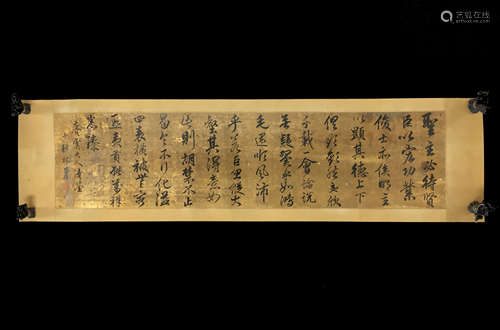 聖主必待賢
臣以宏功業
俊士亦俟明主
以顯其德上下
俱欲歡然交欣
千載一會論說
無疑翼乎如鴻
毛遇順風沛
乎若巨魚縱大
壑其得意如
此則胡禁不止
曷令不行化溢
四表橫被無窮
遐夷貢獻萬祥
畢臻
艺狐在线